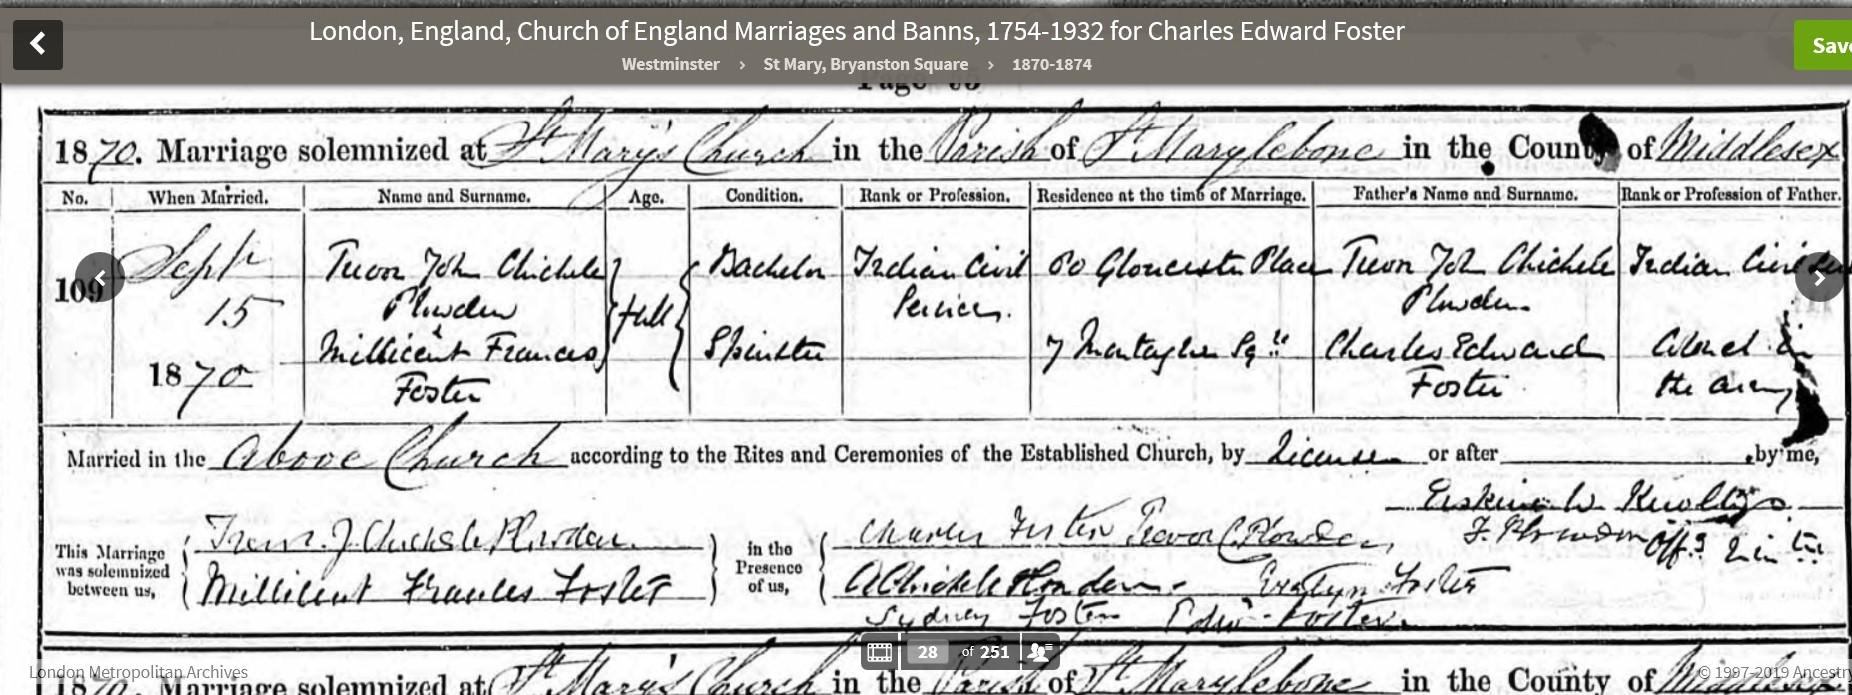 London, England, Church of England Marriages and Banns, 1754-1932 for Charles Edward Foster
Save
Westminster › St Mary, Bryanston Square › 1870-1874
Page
1870. Marriage solemnized at St Mary's Church in the Parish of St Marylebone in the County of Middlesex
No. When Married. Name and Surname. Age. Condition. Rank or Profession. Residence at the time of Marriage. Father's Name and Surname. Rank or Profession of Father.
109 Sept 15 1870
Trevor John Chichele Plowden full Bachelor Indian Civil Service Gloucester Place Trevor John Chichele Plowden Indian Civil
Millicent Frances Foster Spinster 7 Montaghu Sqre Charles Edward Foster Colonel in the army
Married in the above Church according to the Rites and Ceremonies of the Established Church, by License or after , by me,
Erskine W. Knollys
Offg Minter
This Marriage was solemnized between us, Trevor J. Chichele Plowden in the Presence of us, Charles Foster Trevor C Plowden F. Plowden
Millicent Frances Foster A Chichele Plowden Evelyn Foster
Sydney Foster Foster
28 of 251
London Metropolitan Archives
© 1997-2019 Ancestry
1870. Marriage solemnized at St Mary's Church in the Parish of St Marylebone in the County of Middlesex